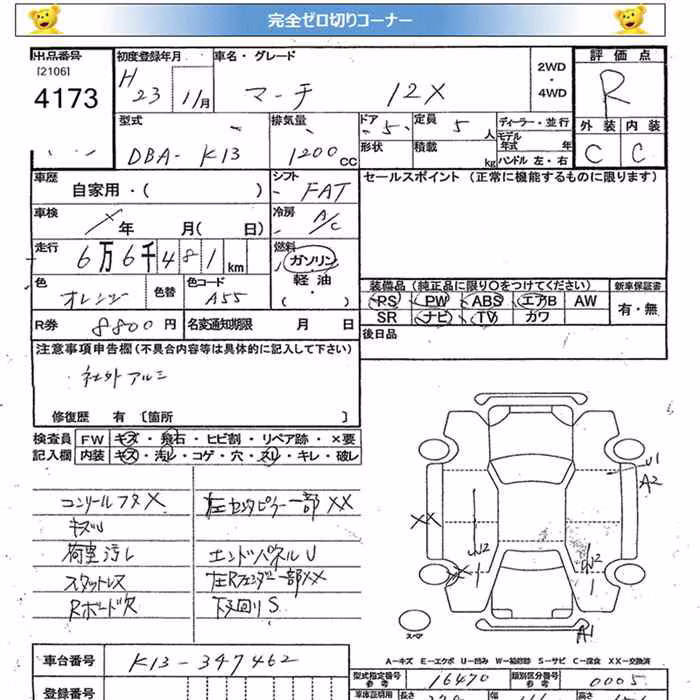 完全ゼロ切りコーナー
出品番号 初度登録年月 車名・グレード 2WD・4WD 評価点
[2106]
4173 H 23 11月 マーチ 12X R
型式 排気量 ドア 定員 ディーラー・並行 外装 内装
DBA- K13 1200 CC 5 5人 モデル年式 年 C C
形状 積載 kg ハンドル 左・右
車歴 シフト セールスポイント (正常に機能するものに限ります)
自家用・( ) FAT
車検 冷房
年 月(日) A/C
走行 6万6千481km 燃料 ガソリン
軽油
・( )
色 色替 色コード 装備品 (純正品に限り○をつけてください) 新車保証書
オレンジ A55 PS PW ABS エアB AW 有・無
SR ナビ TV カワ
R券 8800円 名変通知期限 月 日 後日品
注意事項申告欄 (不具合内容等は具体的に記入して下さい)
社外アルミ
修復歴 有 [箇所 ]
検査員 FW キズ・飛石・ヒビ割・リペア跡・×要
記入欄 内装 キズ・汚レ・コゲ・穴・スレ・キレ・破レ
コンソールフタ X 左センタピラー一部 XX
キズU
荷室汚レ エンドパネルU
スタットレス 左Rフェンダー一部XX
Rボード欠 下廻りS
U1
A2
XX
A1
スペア
A-キズ E-エクボ U-凹み W-補修跡 S-サビ C-腐食 XX-交換済
車台番号 K13-347462
型式指定番号 参考 16470 類別区分番号 参考 0005
登録番号
車庫証明用 長さ